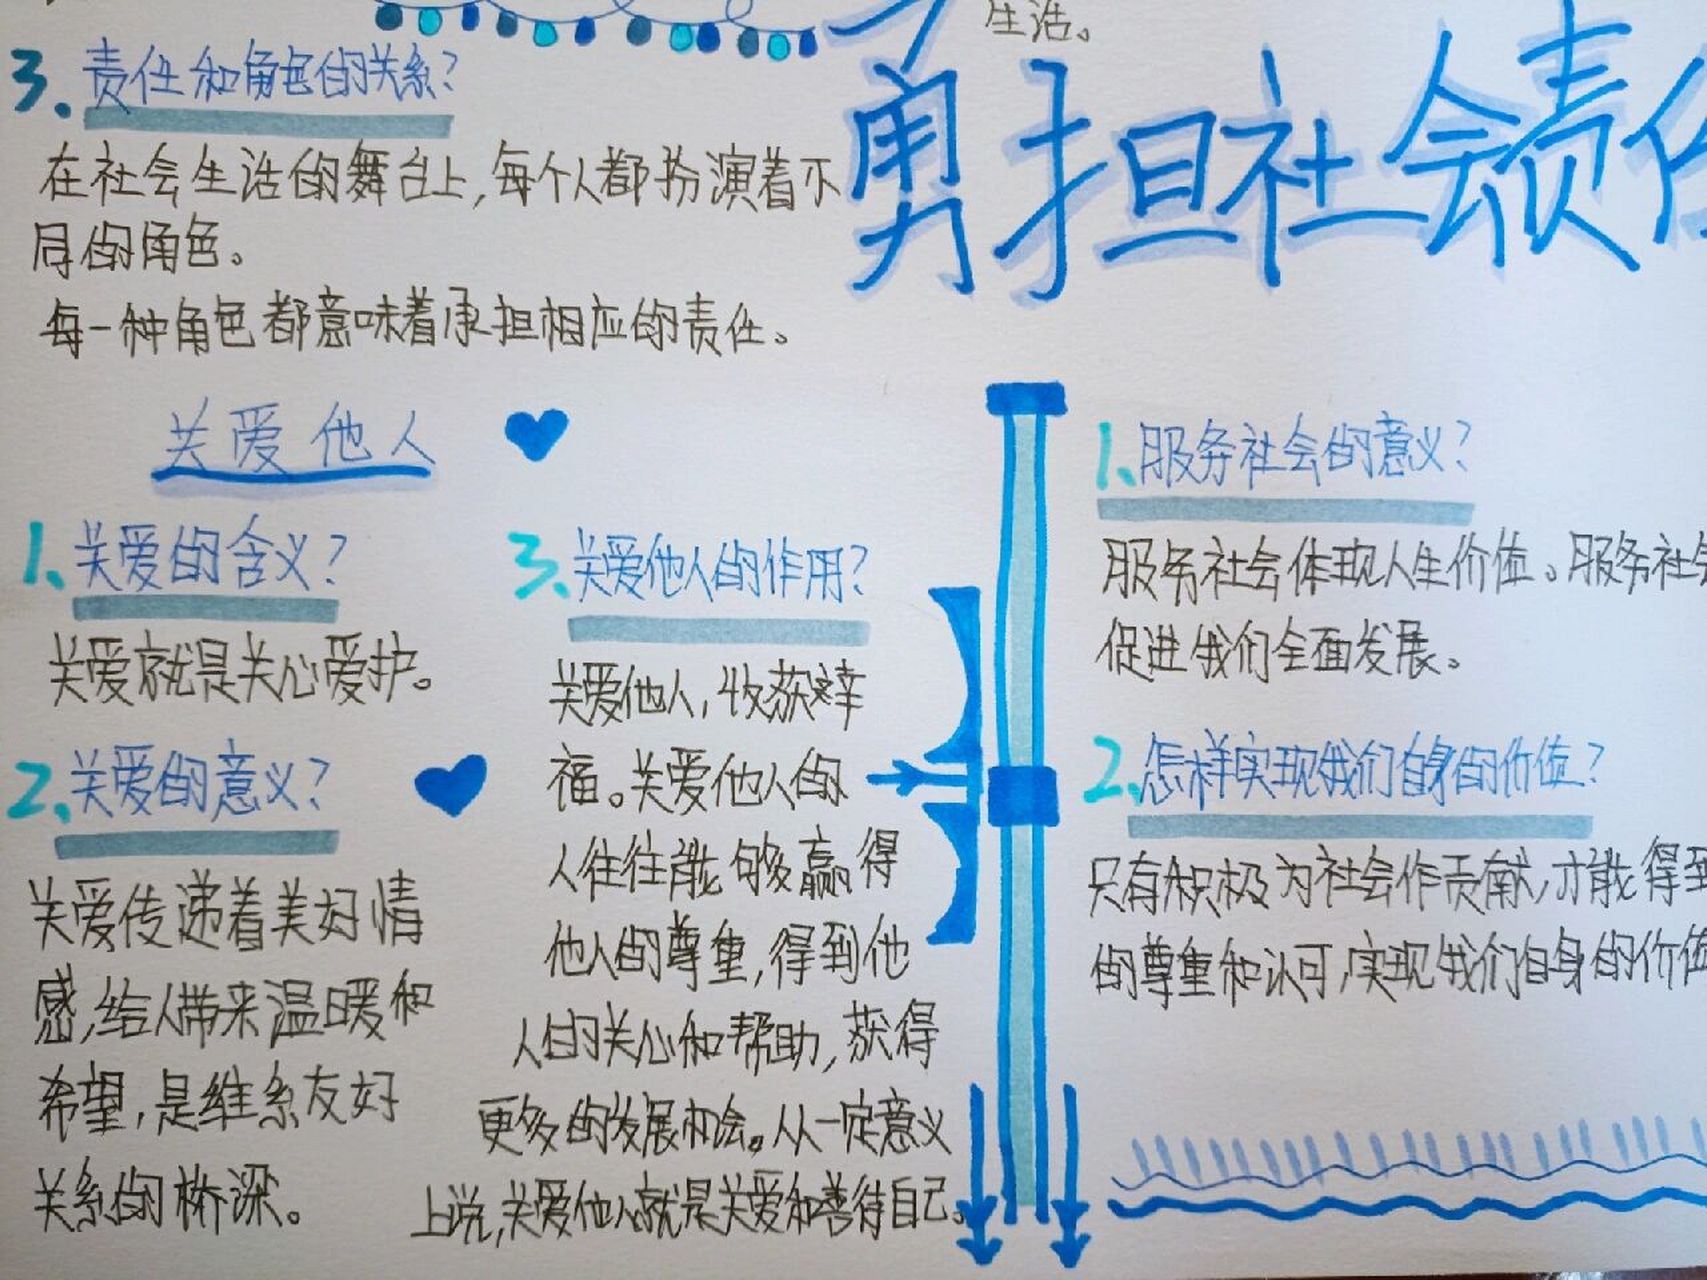 生活。
勇担社会责任
3. 责任和角色的关系?
在社会生活的舞台上,每个人都扮演着不
同的角色。
每一种角色都意味着承担相应的责任。
关爱他人
1、关爱的含义?
关爱就是关心爱护。
2、关爱的意义?
关爱传递着美好情
感,给人带来温暖和
希望,是维系友好
关系的桥深。
3、关爱他人的作用?
关爱他人,收获幸
福。关爱他人的
人往往能够赢得
他人的尊重,得到他
人的关心和帮助,获得
更多的发展机会。从一定意义
上说,关爱他人就是关爱和善待自己。
1、服务社会的意义?
服务社会体现人生价值。服务社会
促进我们全面发展。
2、怎样实现我们自身的价值?
只有积极为社会作贡献,才能得到
的尊重和认可,实现我们自身的价值